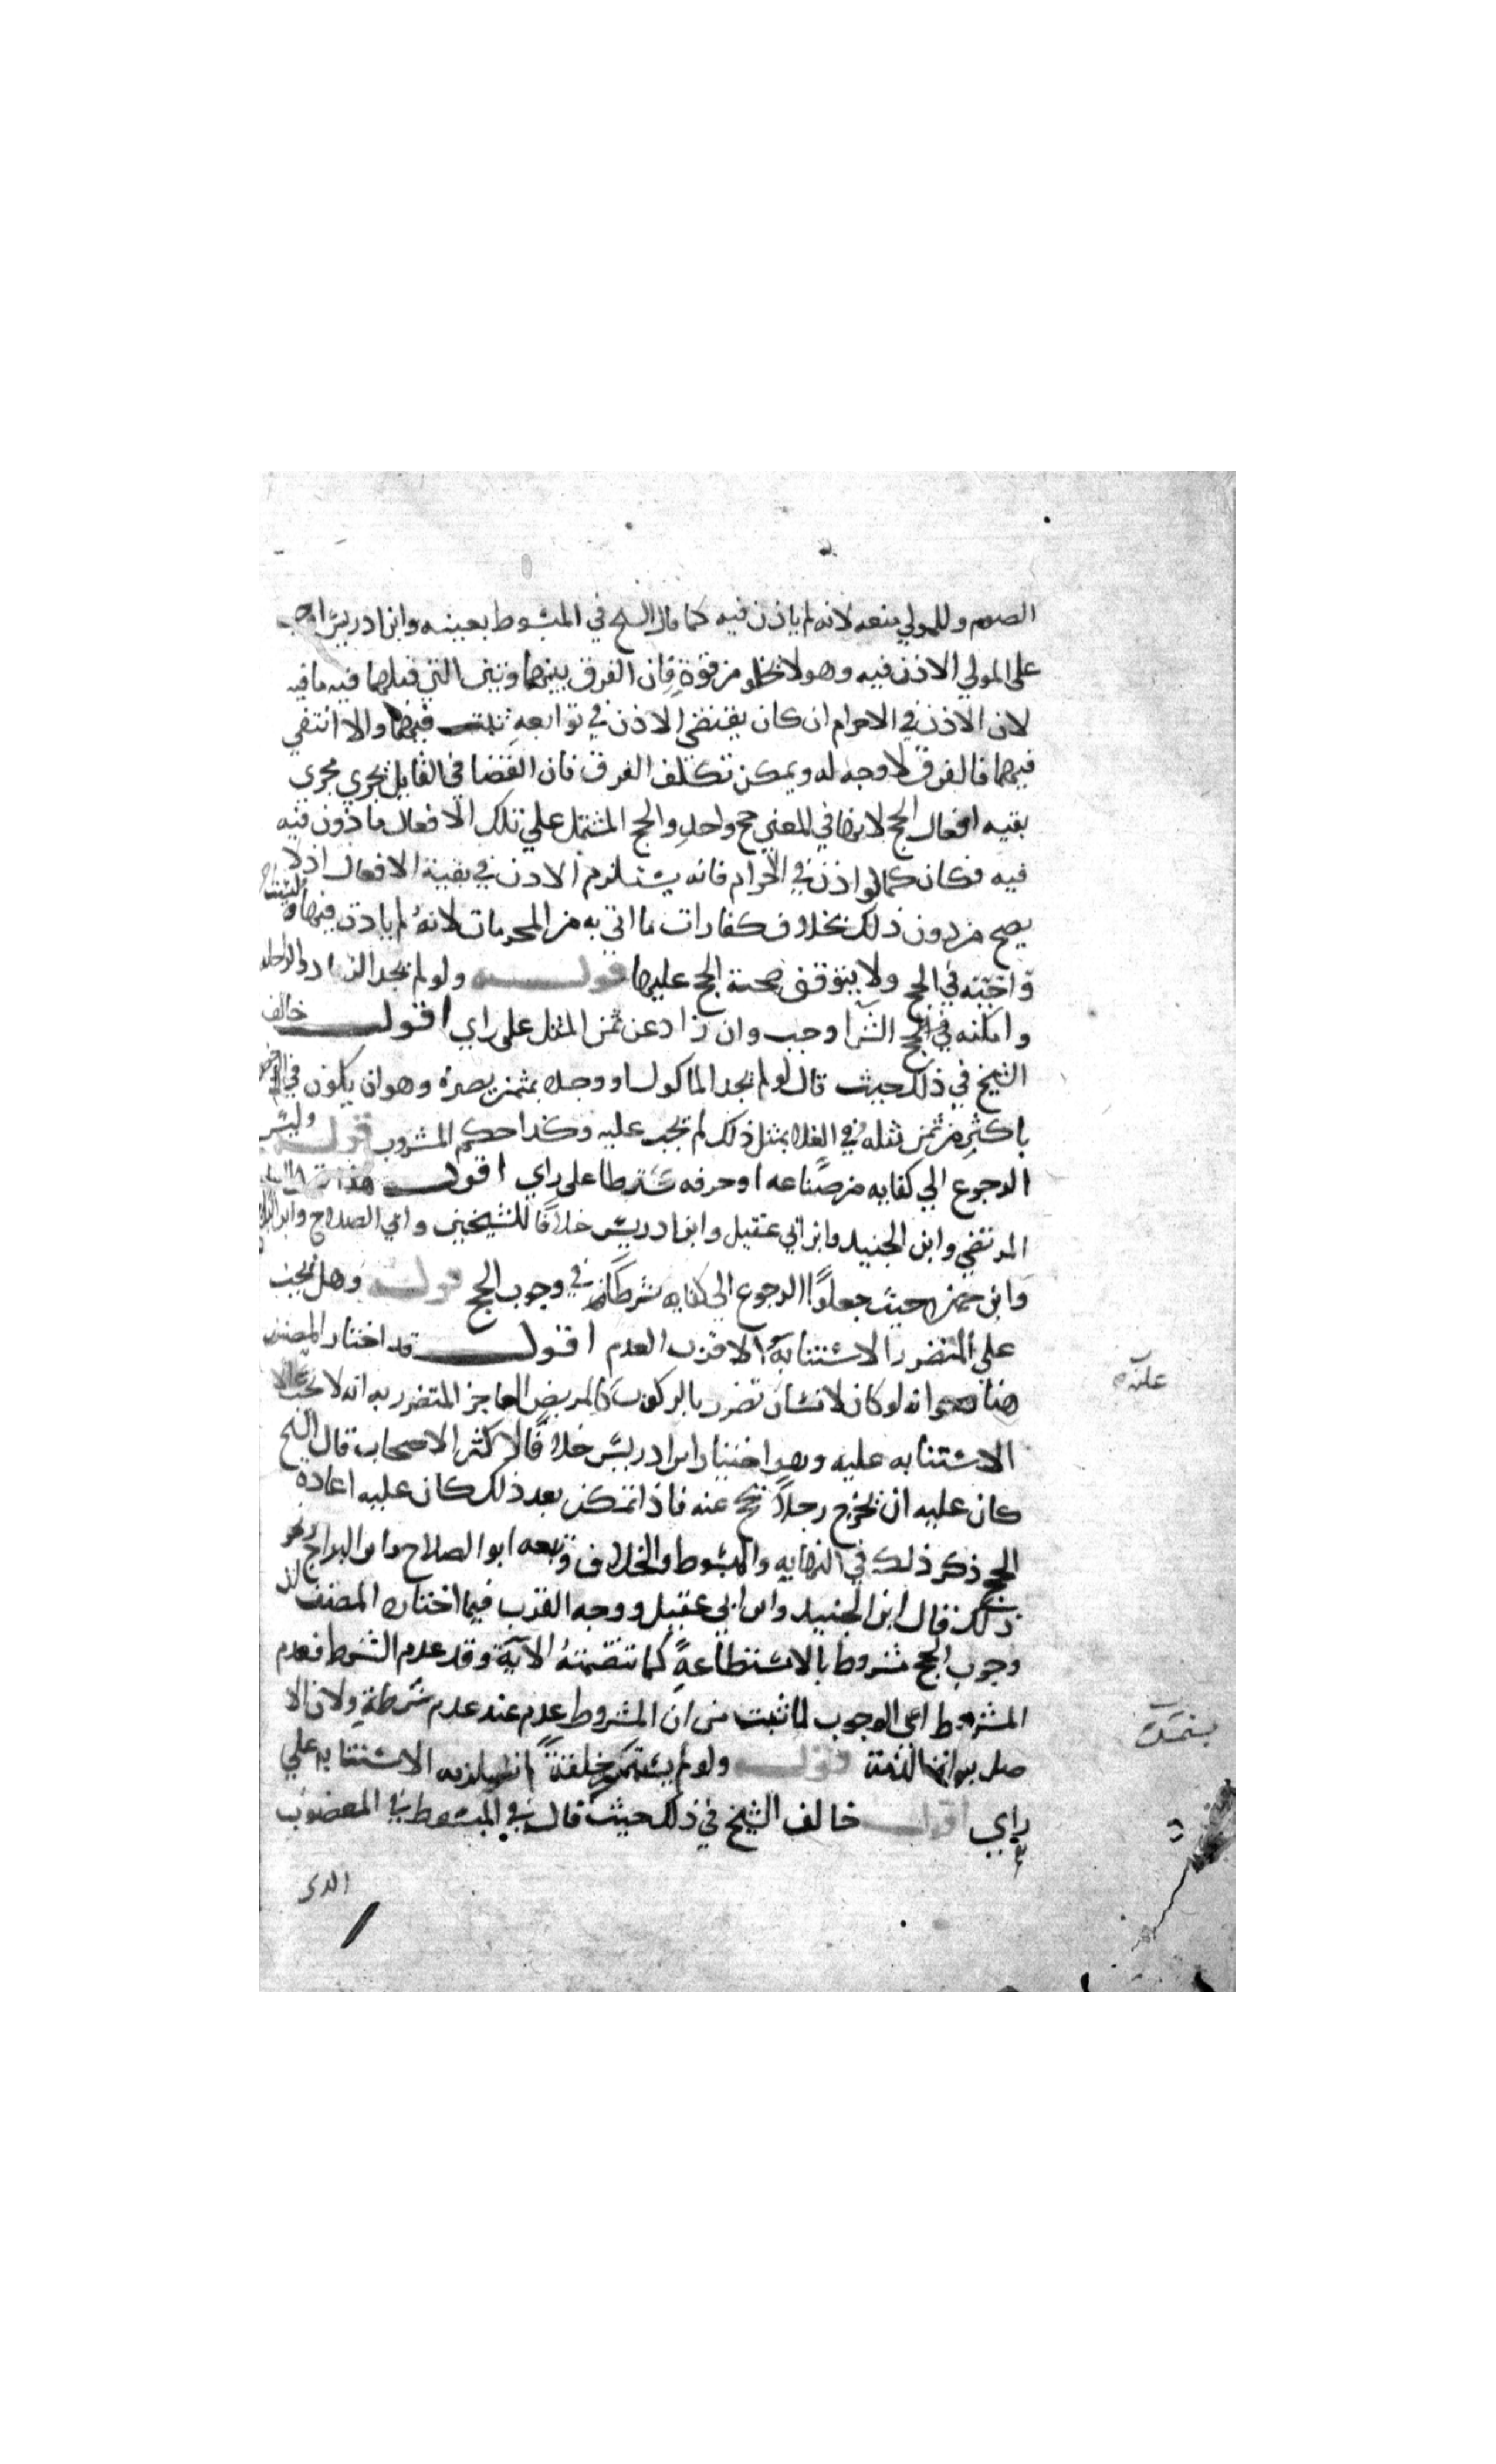 الصوم وللمولي منعه لانه لم ياذن فيه كما قال الشيخ في المبسوط بعينه وابن ادريس اوجب
على المولي الاذن فيه وهو لا يخلو من قوة فان الفرق بينهما وبين التي قبلهما فيه ما فيه
لان الاذن في الاحرام ان كان يقتضي الاذن في توابعه ثبت فيهما والا انتفي
فيهما فالفرق لا وجه له ويمكن تكلف الفرق فان القضا في القابل يجري مجري
بقيه افعال الحج لانها في المعني حج واحد والحج المشتمل علي تلك الافعال ماذون فيه
فيه فكان كما لو اذن في الاحرام فانه يستلزم الاذن في بقية الافعال اذ لا
يصح من دون ذلك بخلاف كفارات ما اتي به من المحرمات لانه لم ياذن فيها وليست
واجبة في الحج ولا يتوقف صحة الحج عليها قوله ولو لم يجد الزاد والراحله
وامكنه في الحج الشرا وجب وان زاد عن ثمن المثل على راي اقول خالف
الشيخ في ذلك حيث قال لو لم يجد الماكول او وجده بثمن يضره وهو ان يكون في الرخص
باكثر من ثمن مثله وفي الغلا بمثل ذلك لم يجب عليه وكذا حكم المشروب قوله وليس
الرجوع الي كفايه من صناعه او حرفه شرطا على راي اقول هذا
المرتضي وابن الجنيد وابن ابي عقيل وابن ادريس خلافا للشيخين وابي الصلاح وابن البراج
وابن حمزه حيث جعلوا الرجوع الي كفايه شرطا في وجوب الحج قوله وهل يجب
على المتضرر الاستنابة الاقرب العدم اقول قد اختار المصنف
هنا وهو انه لو كان لانسان تضرر بالركوب كالمريض العاجز المتضرر به انه لا يجب
الاستنابه عليه وهو اختيار ابن ادريس خلافا لاكثر الاصحاب قال الشيخ
كان عليه ان يخرج رجلا يحج عنه فاذا تمكن بعد ذلك كان عليه اعادة
الحج ذكر ذلك في النهايه والمبسوط والخلاف وتبعه ابو الصلاح وابن البراج ونحو
ذلك قال ابن الجنيد وابن ابي عقيل ووجه القرب فيما اختاره المصنف ان
وجوب الحج مشروط بالاستطاعة كما تضمنته الاية وقد عدم الشرط فعدم
المشروط اعني الوجوب لما ثبت من ان المشروط عدم عند عدم شرطه ولان الا
صل براة الذمة قوله ولو لم يستمسك خلقة لم يلزمه الاستنابه علي
راي اقول خالف الشيخ في ذلك حيث قال في المبسوط في المعضوب
الذي